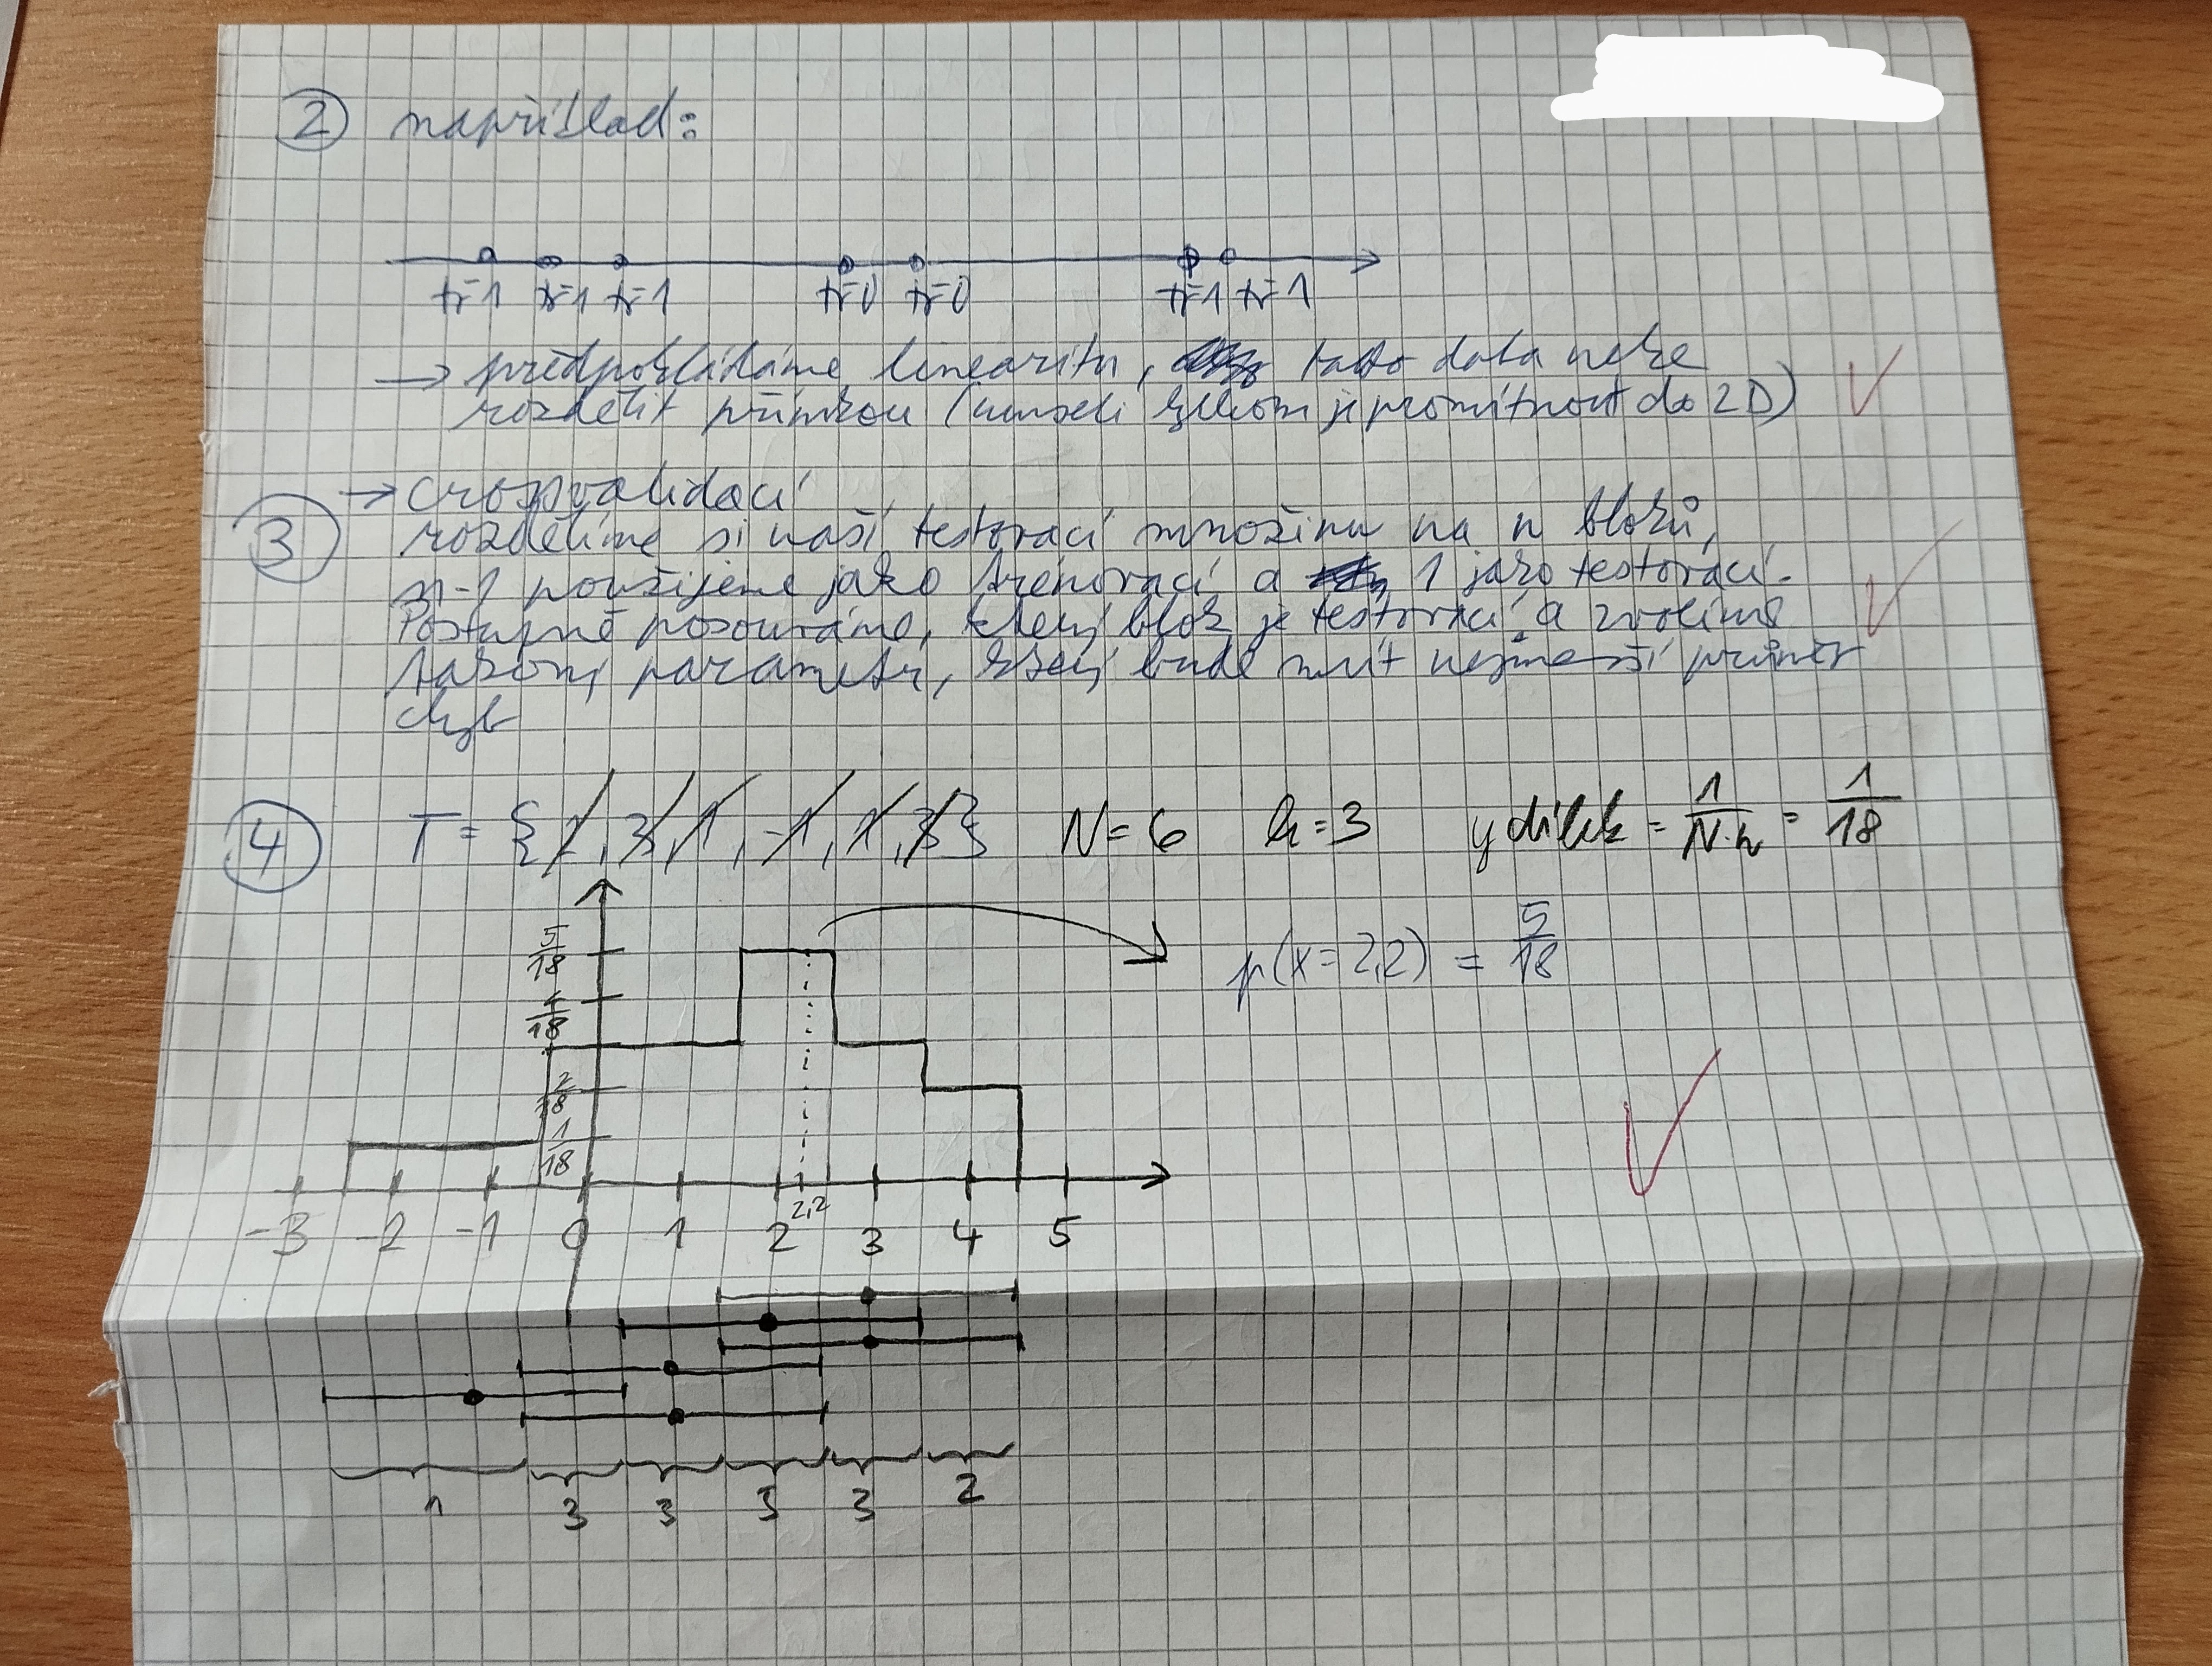 2 například:
tr=1 tr=1 tr=1 tr=0 tr=0 tr=1 tr=1
→ předpokládáme linearitu, tato data nelze
rozdělit přímkou (museli bychom je promítnout do 2D)
→ crossvalidací
3 rozdělíme si naší testovací množinu na n bloků,
n-1 použijeme jako trénovací a 1 jako testovací.
Postupně posouváme, který blok je testovací a zvolíme
takový parametr, který bude mít nejmenší průměr
chyb
4 T = {2, 3, 1, -1, 1, 3} N = 6 h = 3 y dílek = 1/(N·h) = 1/18
5/18
p(x=2,2) = 5/18
4/18
2/18
1/18
2,2
-3 -2 -1 0 1 2 3 4 5
1 3 3 5 3 2